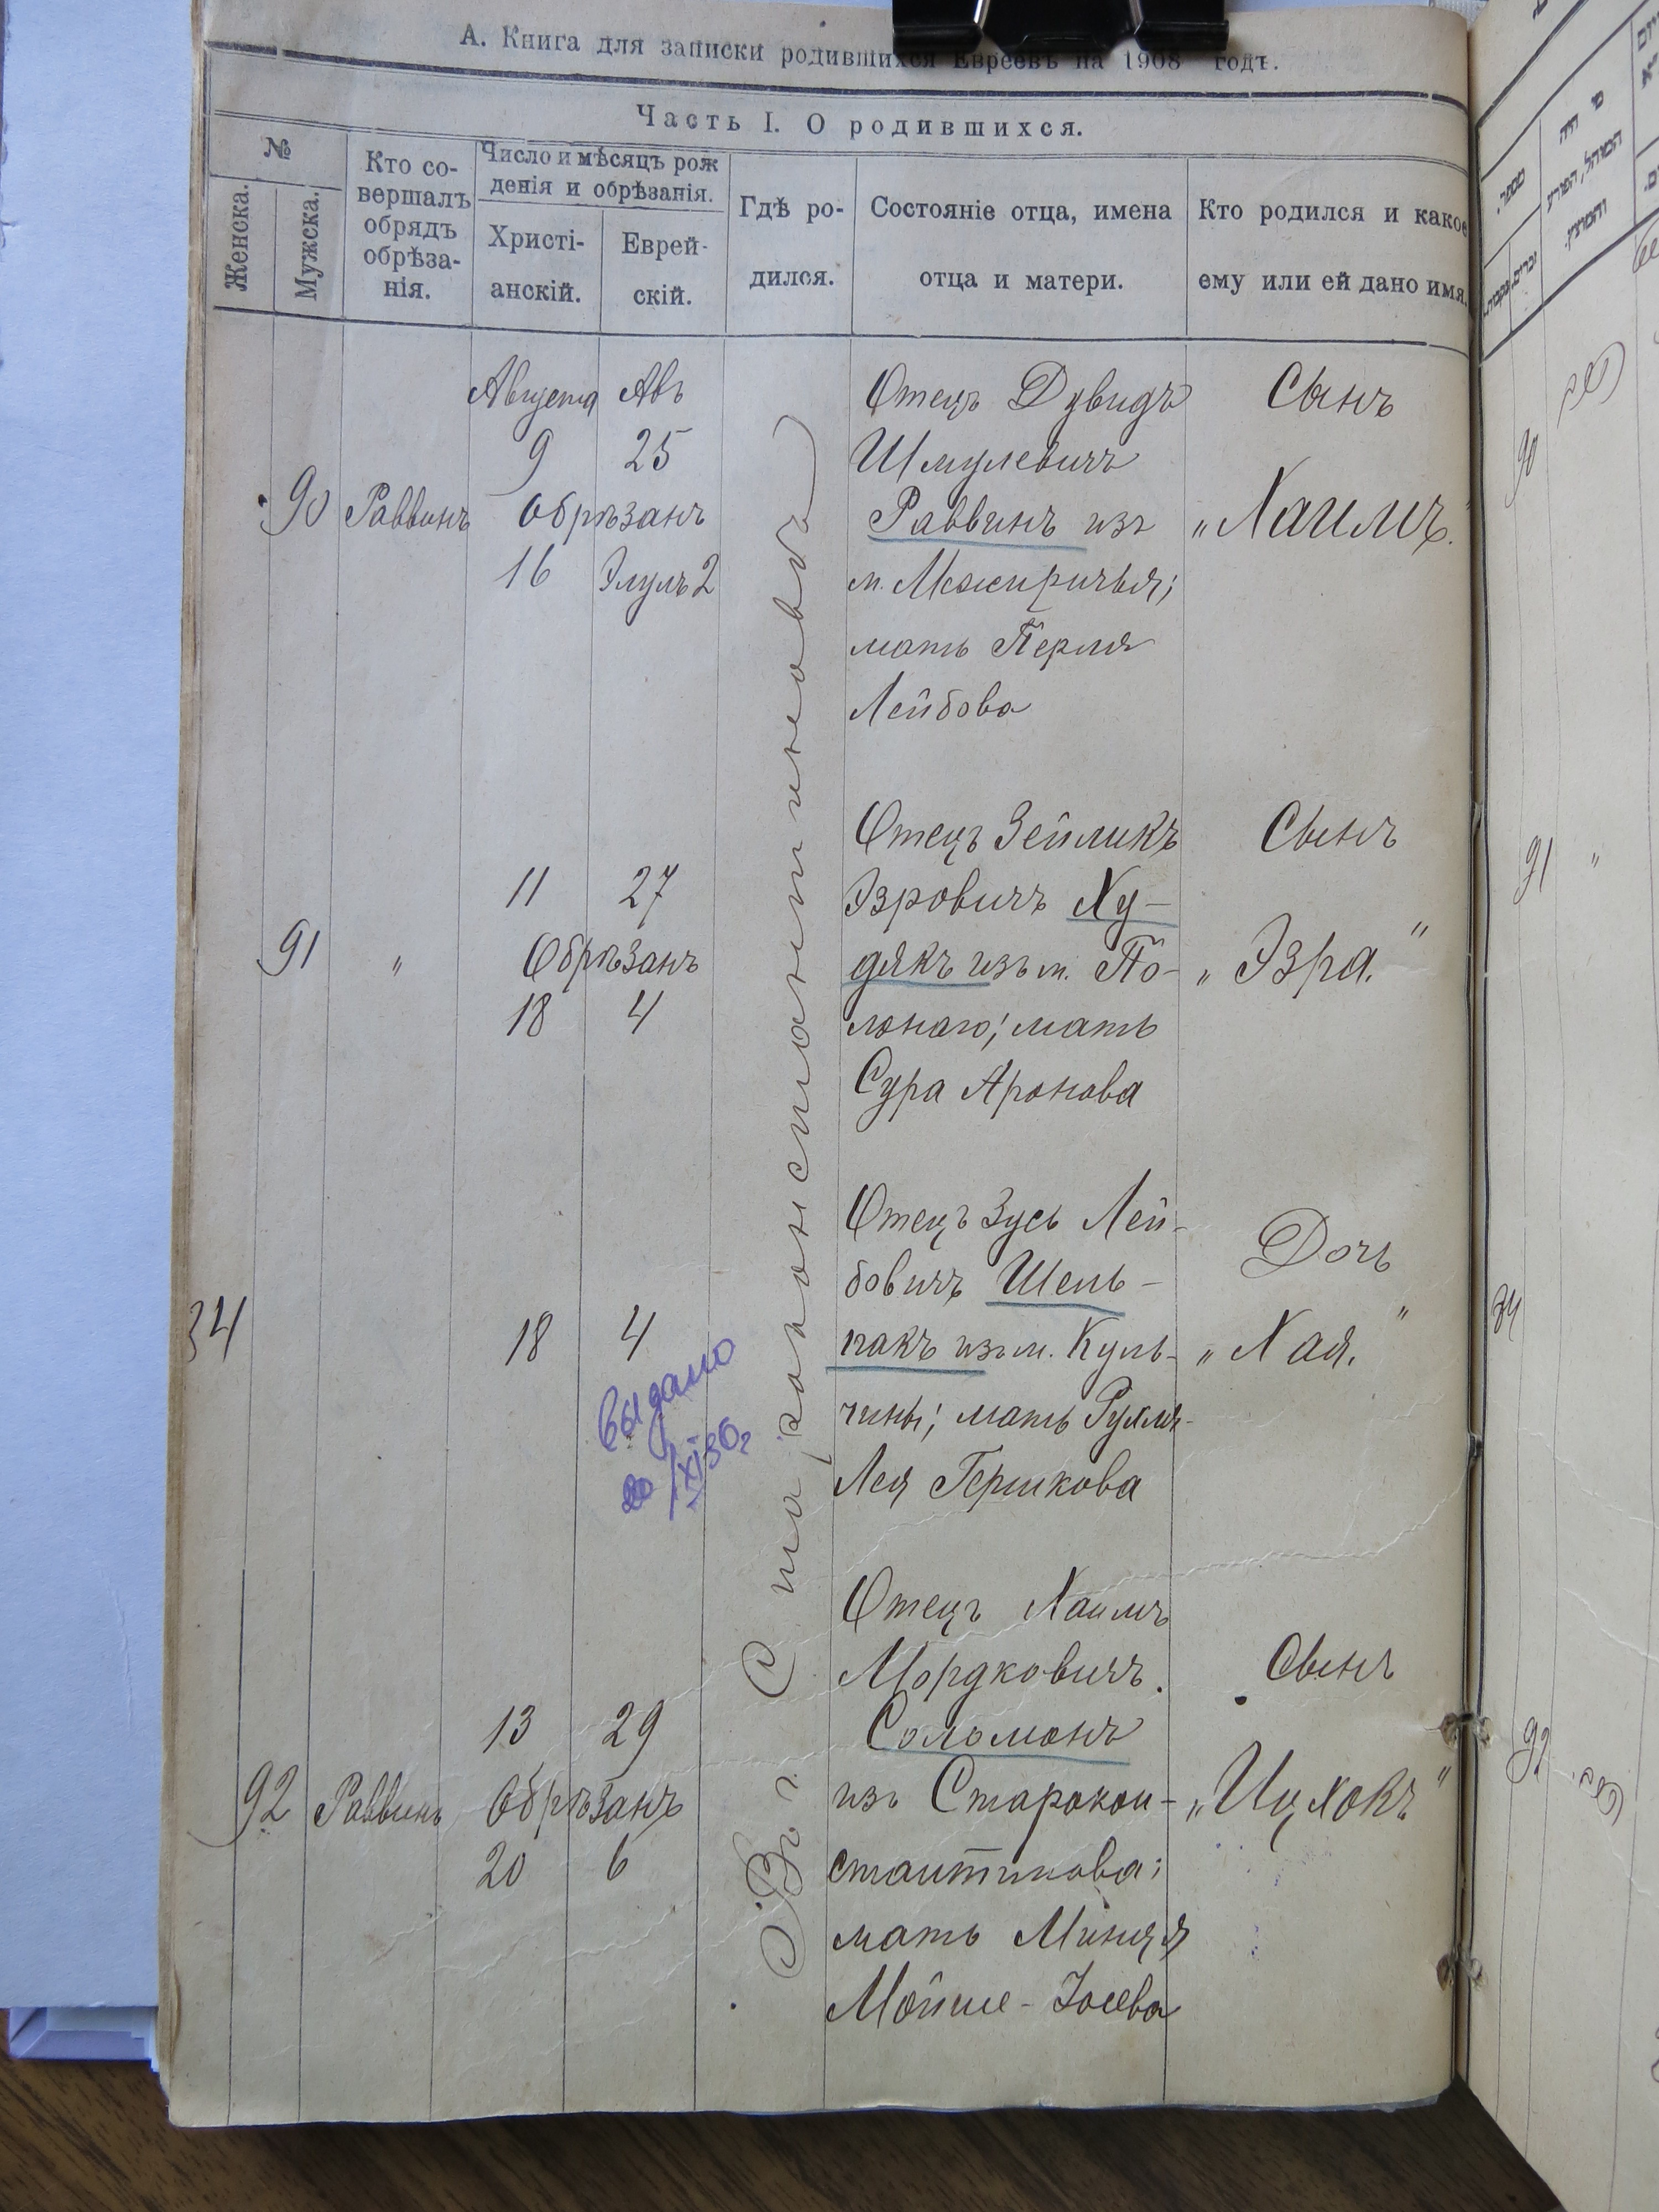 А. Книга для записки родившихся Евреевъ на 1908 годъ.
Часть I. О родившихся.
№
Женска.
Мужска.
Кто со-
вершалъ
обрядъ
обрѣза-
нія.
Число и мѣсяцъ рож
денія и обрѣзанія.
Христі-
анскій.
Еврей-
скій.
Гдѣ ро-
дился.
Состояніе отца, имена
отца и матери.
Кто родился и какое
ему или ей дано имя.
Въ г. Староконстантиновъ
90
Раввинъ
Августа Авъ
9 25
Обрѣзанъ
16 Элулъ 2
Отецъ Дувидъ
Шмулевичъ
Раввинъ изъ
м. Межиричья;
мать Перля
Лейбова
Сынъ
„Хаимъ."
91
"
11 27
Обрѣзанъ
18 4
Отецъ Зейликъ
Эзровичъ Ху-
дякъ изъ м. По-
лонаго; мать
Сура Аронова
Сынъ
„Эзра."
34
18 4
выдано
20/XI 30г
Отецъ Зусь Лей-
бовичъ Шень-
пакъ изъ м. Куль-
чины; мать Рухля-
Лея Гершкова
Дочь
„Хая."
92
Раввинъ
13 29
Обрѣзанъ
20 6
Отецъ Хаимъ
Мордковичъ
Соломонъ
изъ Старокон-
стантинова;
мать Миндя
Мойше-Іосева
Сынъ
„Ицхокъ"
90
91 "
34
92